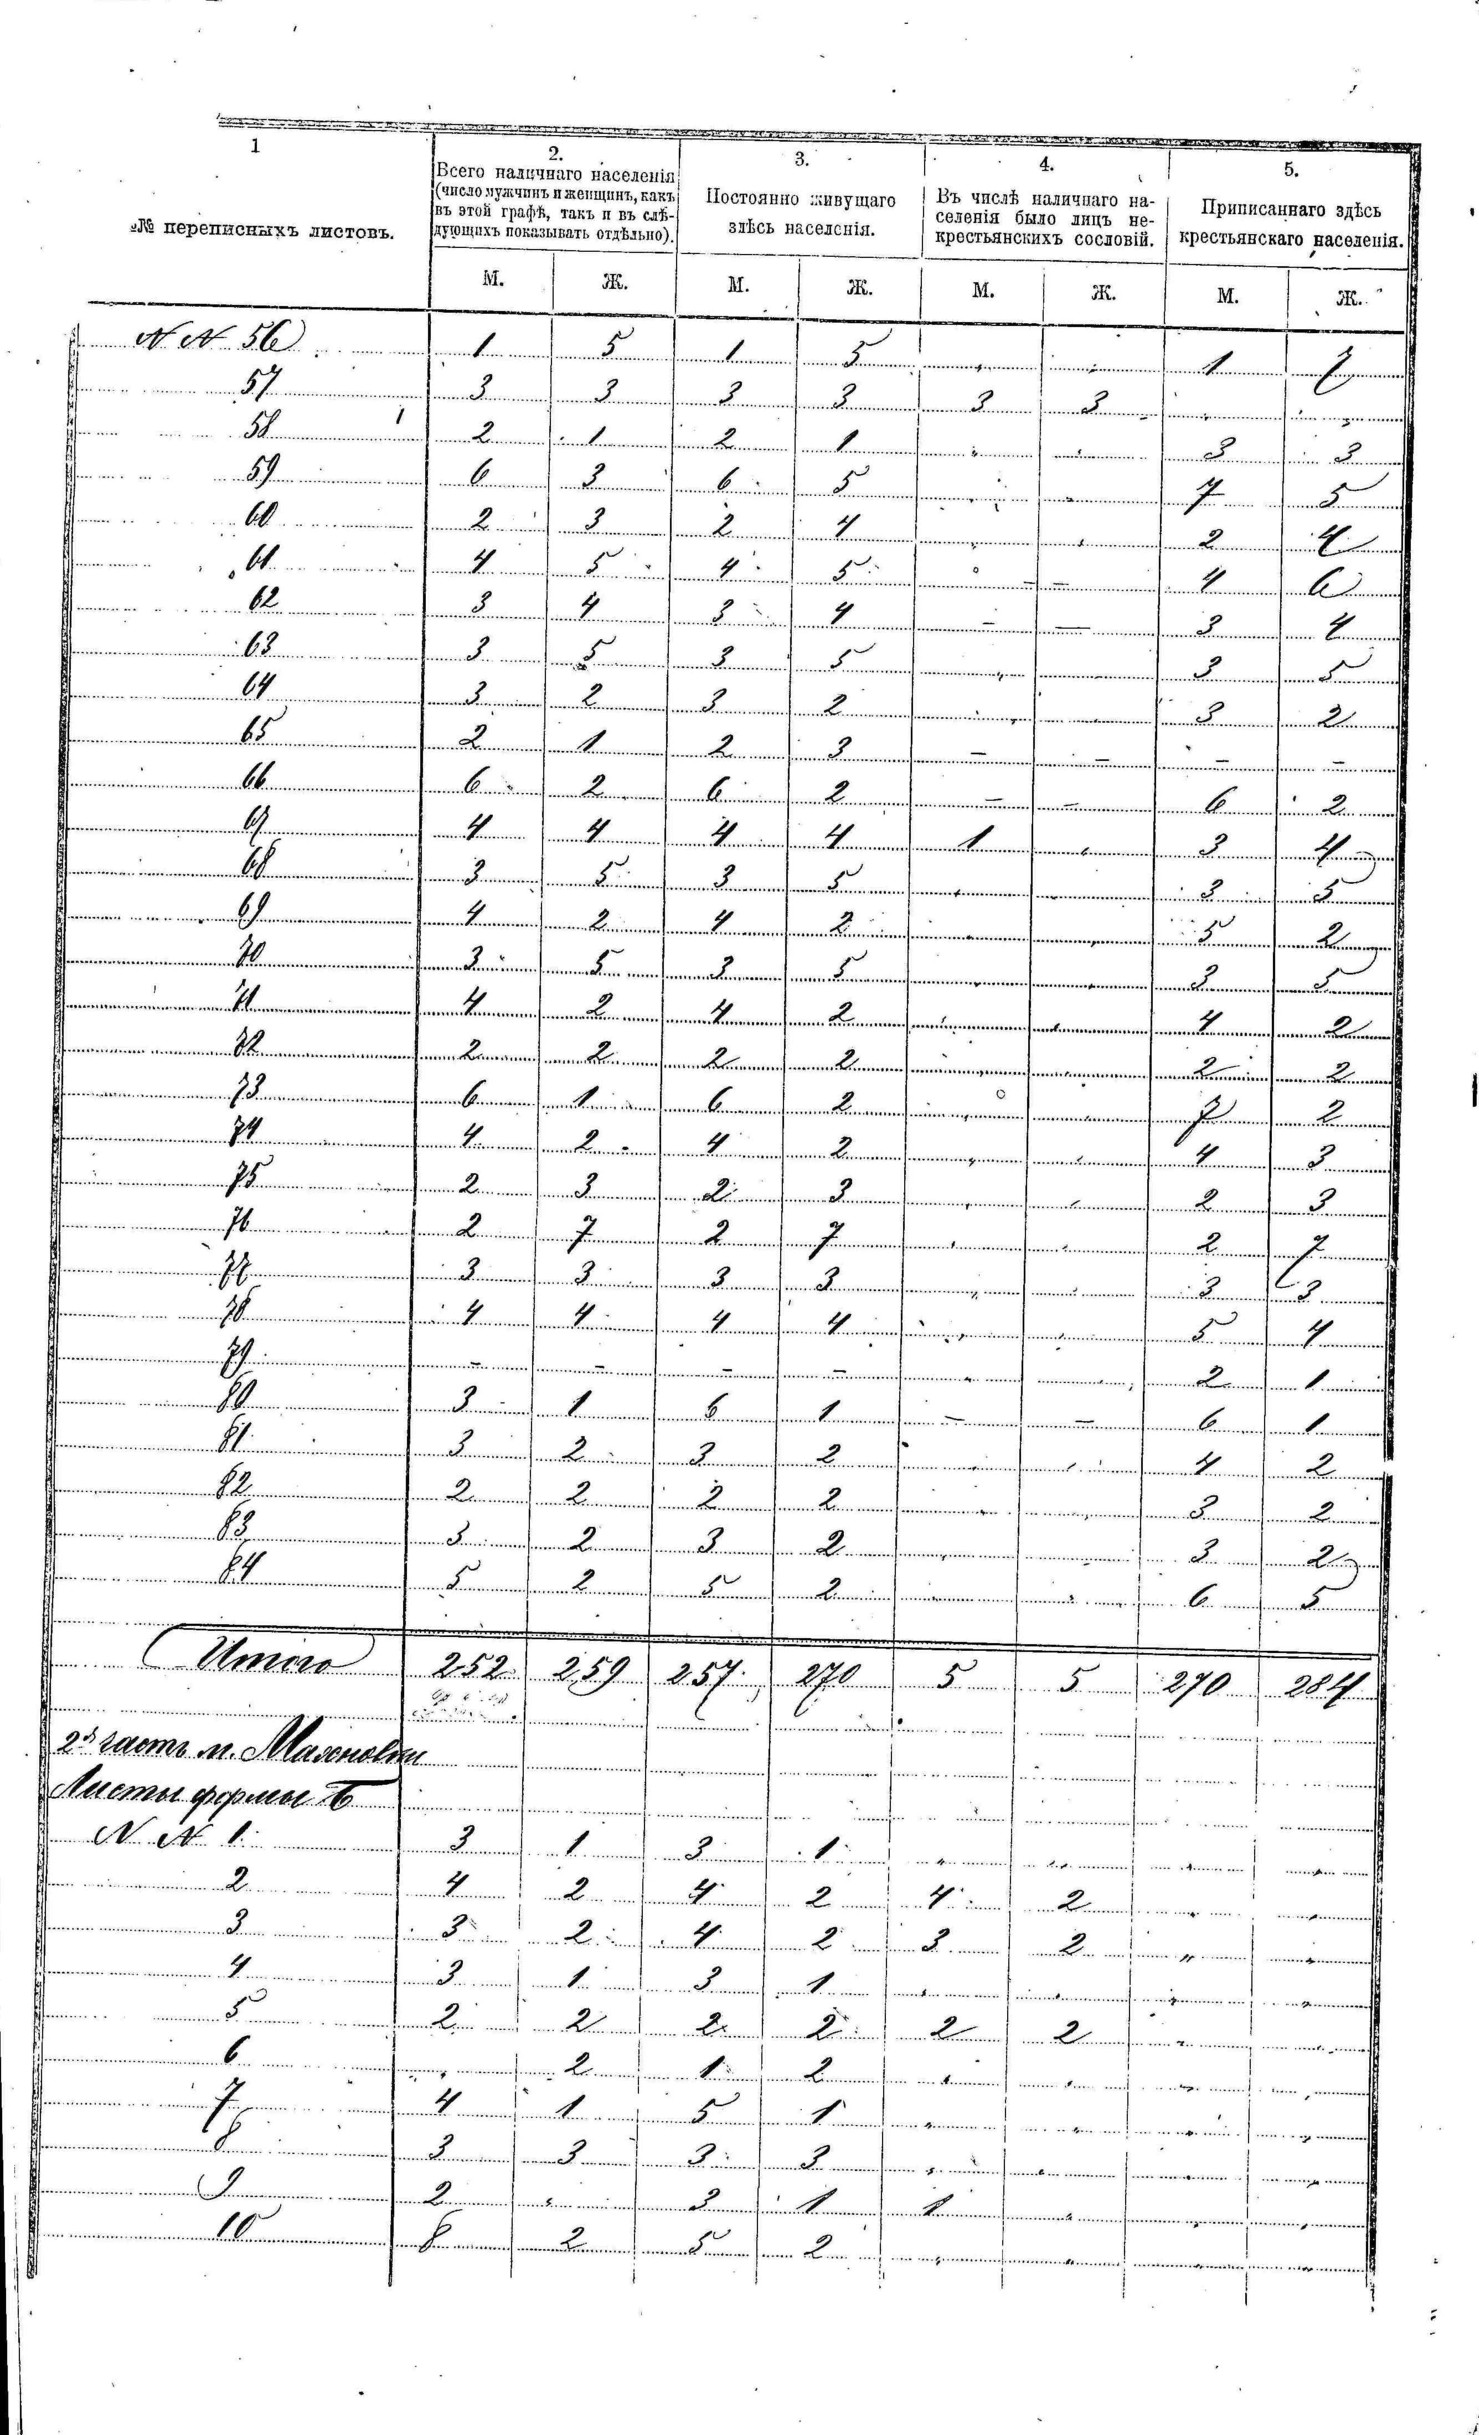 1 2. 3. 4. 5.
№ переписныхъ листовъ. Всего наличнаго населенія (число мужчинъ и женщинъ, какъ въ этой графѣ, такъ и въ слѣдующихъ показывать отдѣльно). Постоянно живущаго здѣсь населенія. Въ числѣ наличнаго населенія было лицъ не-крестьянскихъ сословій. Приписаннаго здѣсь крестьянскаго населенія.
М. Ж. М. Ж. М. Ж. М. Ж.
N N 56 1 5 1 5 " " 1 7
57 3 3 3 3 3 3 " "
58 2 1 2 1 " " 3 3
59 6 3 6 5 " " 7 5
60 2 3 2 4 " " 2 4
61 4 5 4 5 — — 4 6
62 3 4 3 4 — — 3 4
63 3 5 3 5 " " 3 5
64 3 2 3 2 " " 3 2
65 2 1 2 3 — — — —
66 6 2 6 2 — — 6 2
67 4 4 4 4 1 " 3 4
68 3 5 3 5 " " 3 5
69 4 2 4 2 " " 5 2
70 3 5 3 5 " " 3 5
71 4 2 4 2 " " 4 2
72 2 2 2 2 " " 2 2
73 6 1 6 2 " " 7 2
74 4 2 4 2 " " 4 3
75 2 3 2 3 " " 2 3
76 2 7 2 7 " " 2 7
77 3 3 3 3 " " 3 3
78 4 4 4 4 " " 5 4
79 — — — — " " 2 1
80 3 1 6 1 — — 6 1
81 3 2 3 2 " " 4 2
82 2 2 2 2 " " 3 2
83 3 2 3 2 " " 3 2
84 5 2 5 2 " " 6 5
Итого 252 259 257 270 5 5 270 284
2я часть м. Махновки
Листы формы Б
N N 1 3 1 3 1 " " " "
2 4 2 4 2 4 2 " "
3 3 2 4 2 3 2 " "
4 3 1 3 1 " " " "
5 2 2 2 2 2 2 " "
6 " 2 1 2 " " " "
7 4 1 5 1 " " " "
8 3 3 3 3 " " " "
9 2 " 3 1 1 " " "
10 8 2 5 2 " " " "